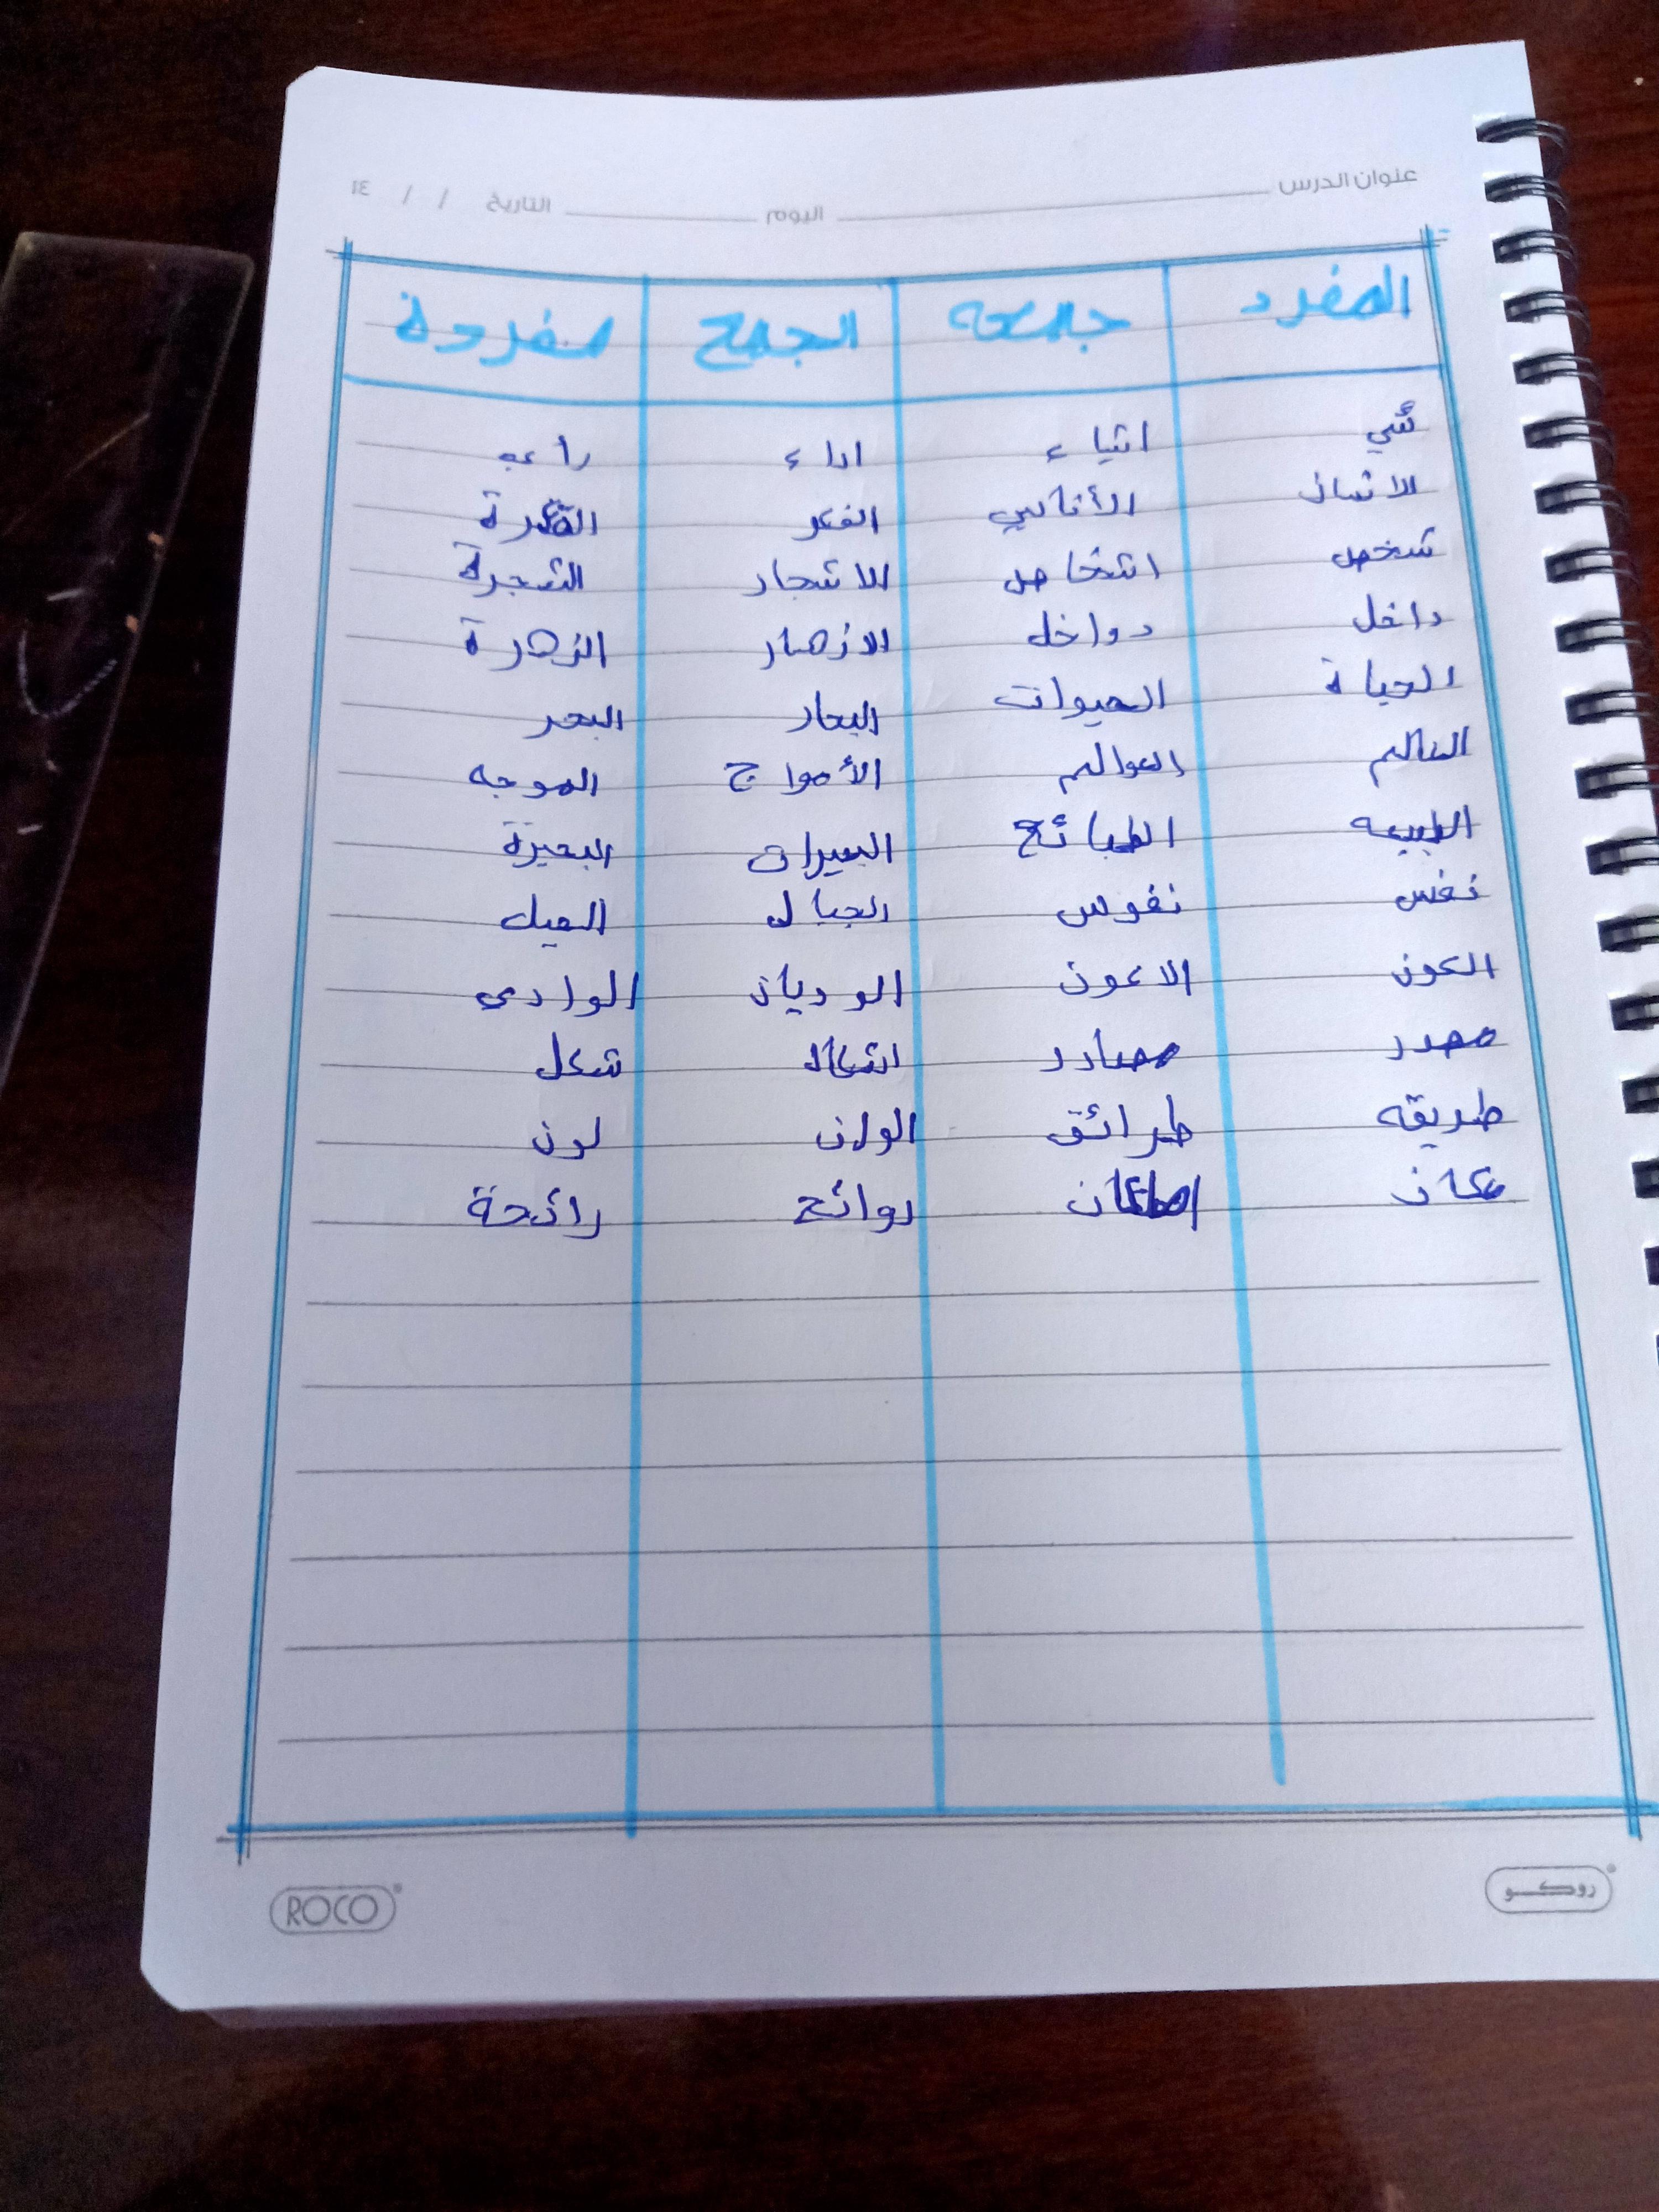 عنوان الدرس اليوم التاريخ / / ١٤
المفرد جمعه الجمع مفردة
شي اشياء اراء رأي
الانسان الأناسي الفكر الفكرة
شخص اشخاص الاشجار الشجرة
داخل دواخل الازهار الزهرة
الحياة الحيوات البحار البحر
العالم العوالم الأمواج الموجه
الطبيعه الطبائع البحيرات البحيرة
نفس نفوس الجبال الجبل
الكون الاكون الوديان الوادي
مصدر مصادر اشكال شكل
طريقه طرائق الوان لون
مكان روائح رائحة
ROCO روكو